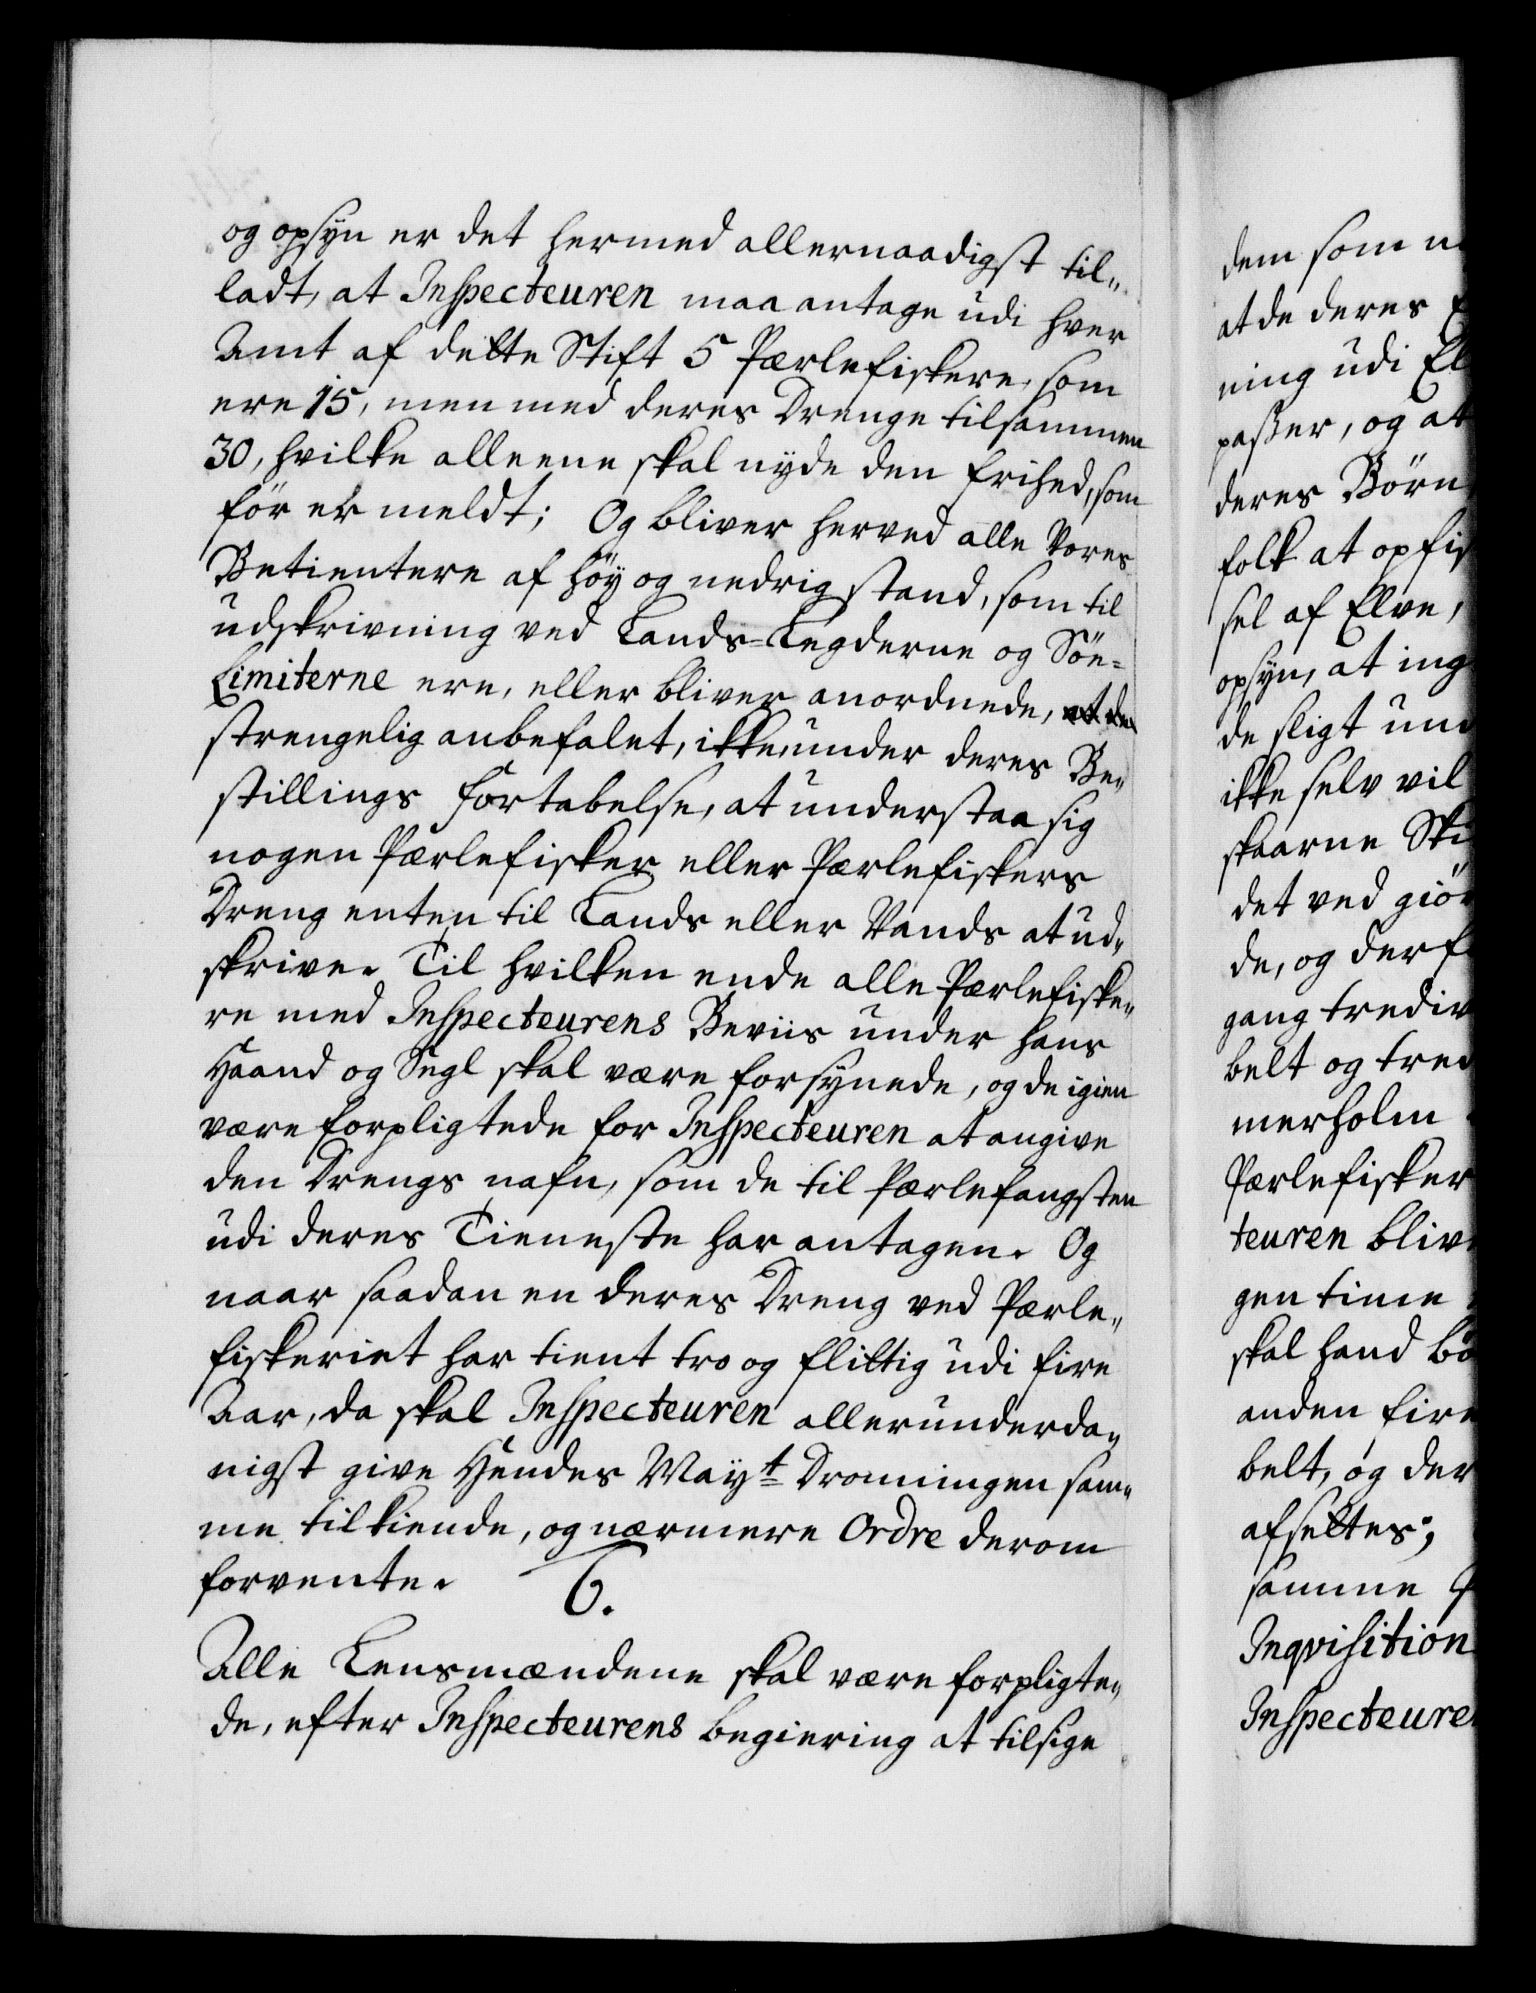 og opsyn er det hermed allernaadigst til„
ladt, at Inspecteuren maa antage udi hver
Amt af dette Stift 5 Pærlefiskere, som
ere 15, men med deres Drenge tilsammen
30, hvilke alleene skal nyde den frihed, som
för er meldt; Og bliver herved alle Vores
Betientere af höy og nedrig stand, som til
udskrivning ved Lands-Legderne og Söe-
Limiterne ere, eller bliver anordnede,
strengelig anbefalet, ikke, under deres Be„
stillings fortabelse, at understaa sig
nogen Pærlefisker eller Pærlefiskers
Dreng enten til Lands eller Vands at ud„
skrive. Til hvilken ende alle Pærlefiske„
re med Inspecteurens Beviis under hans
Haand og Segl skal være forsynede, og de igien
være forpligtede for Inspecteuren at angive
den Drengs nafn, som de til Pærlefangsten
udi deres Tieneste har antagen. Og
naar saadan en deres Dreng ved Pærle„
fiskeriet har tient tro og flittig udi fire
Aar, da skal Inspecteuren allerunderda„
nigst give Hendes Mayt Dronningen sam„
me tilkiende, og nærmere Ordre derom
forvente.
6.
Alle Lensmændene skal være forpligte„
de, efter Inspecteurens begiering at tilsige
dem som
at de deres
ning udi El
passer, og at
deres Börn
folk at opfis
sel af Elve,
opsyn, at ing
de sligt und
ikke selv vil
skaarne Ski
det ved giör
de, og derf
gang trediv
belt og tred
merholm
Pærlefisker
teuren blive
gen time
skal hand bö
anden fire
belt, og der
afsettes;
samme
Inqvisition
Inspecteure